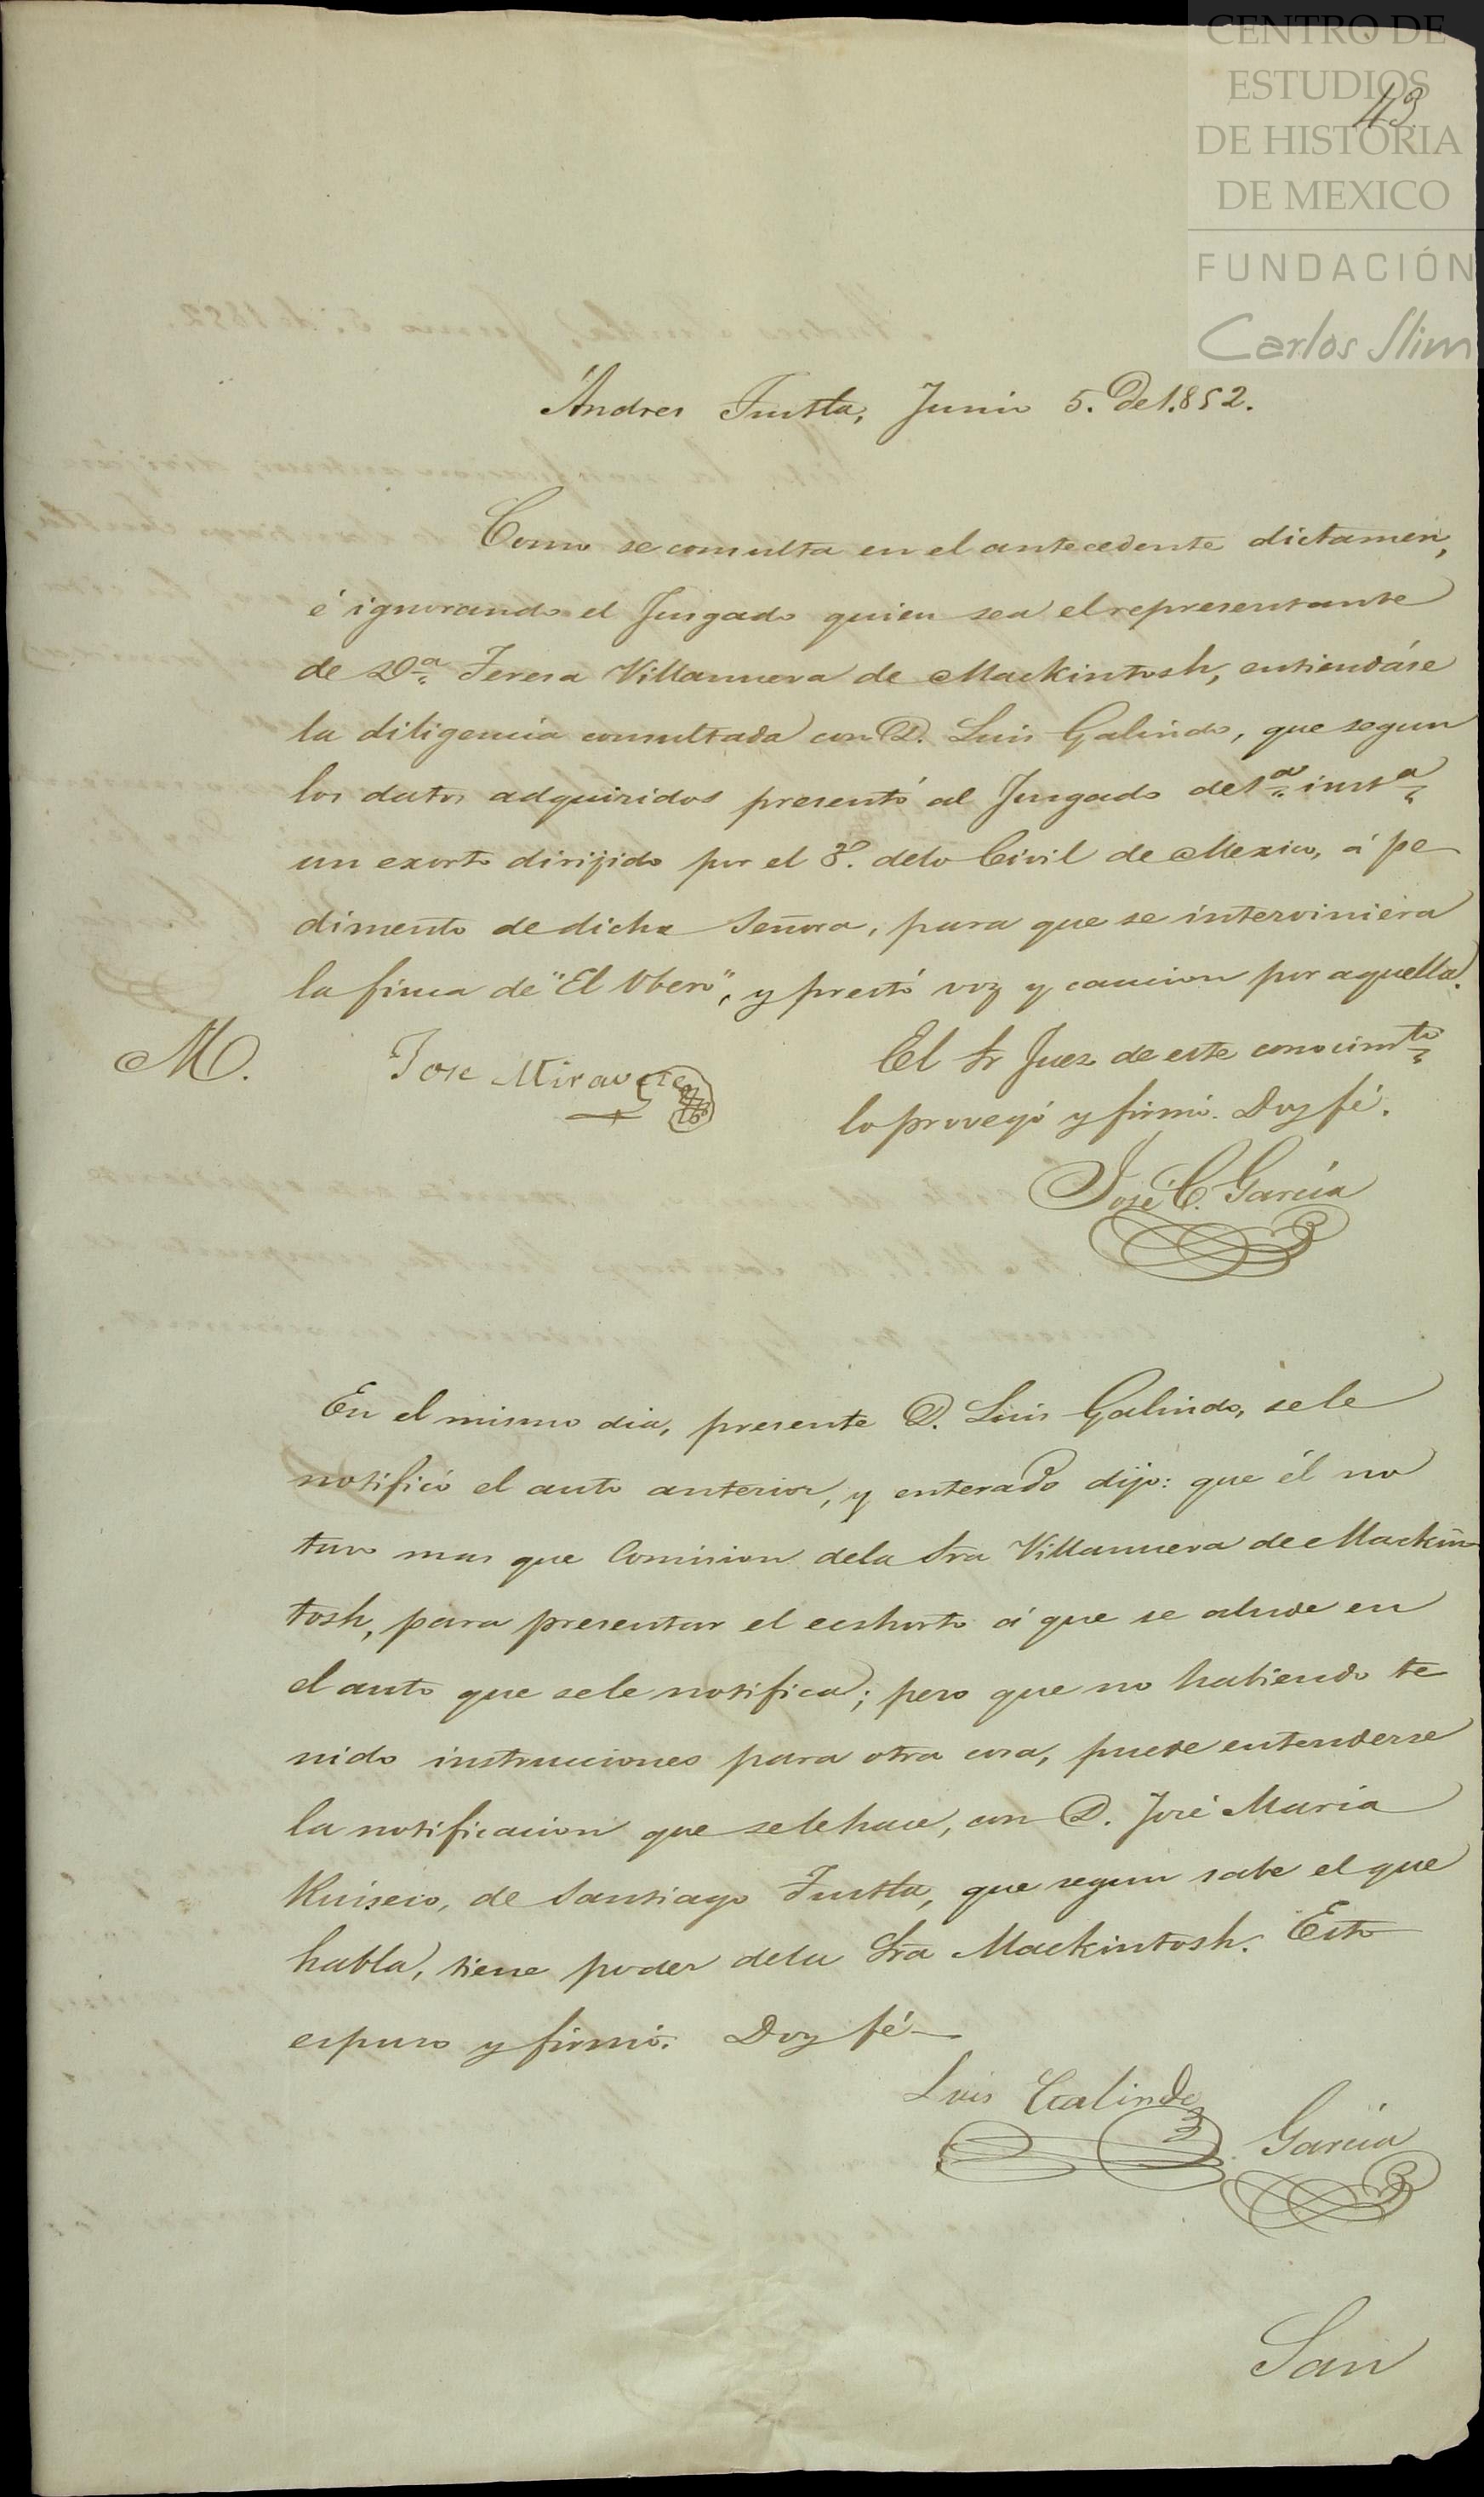 CENTRO DE
ESTUDIOS
DE HISTORIA
DE MEXICO
FUNDACIÓN
Carlos Slim
43
Andres Tustla, Junio 5. de 1.852.
Como se consulta en el antecedente dictamen,
é ignorando el Jusgado quien sea el representante
de Dª Teresa Villanueva de Mackintosh, entiendáse
la diligencia consultada con D. Luis Galindo, que segun
los datos adquiridos presentó al Jusgado de 1ª instª
un exorto dirijido por el 3º. delo Civil de Mexico, á pe
dimento de dicha Señora, para que se interviniera
la finca de "El Obero", y prestó voz y caucion por aquella.
El Sr Juez de este conocimto
lo proveyó y firmó. Doy fé.
M.
Jose Miravete
José C. García
En el mismo dia, presente D. Luis Galindo, sele
notificó el auto anterior, y enterado dijo: que él no
tuvo mas que Comision dela Sra Villanueva de Mackin
tosh, para presentar el ecshorto á que se alude en
el auto que sele notifica; pero que no habiendo te
nido instrucciones para otra cosa, puede entenderse
la notificacion que sele hace, con D. José Maria
de Santiago Tustla, que segun sabe el que
habla, tiene poder dela Sra Mackintosh. Esto
espuso y firmó. Doy fé
Luis Galindo
García
San